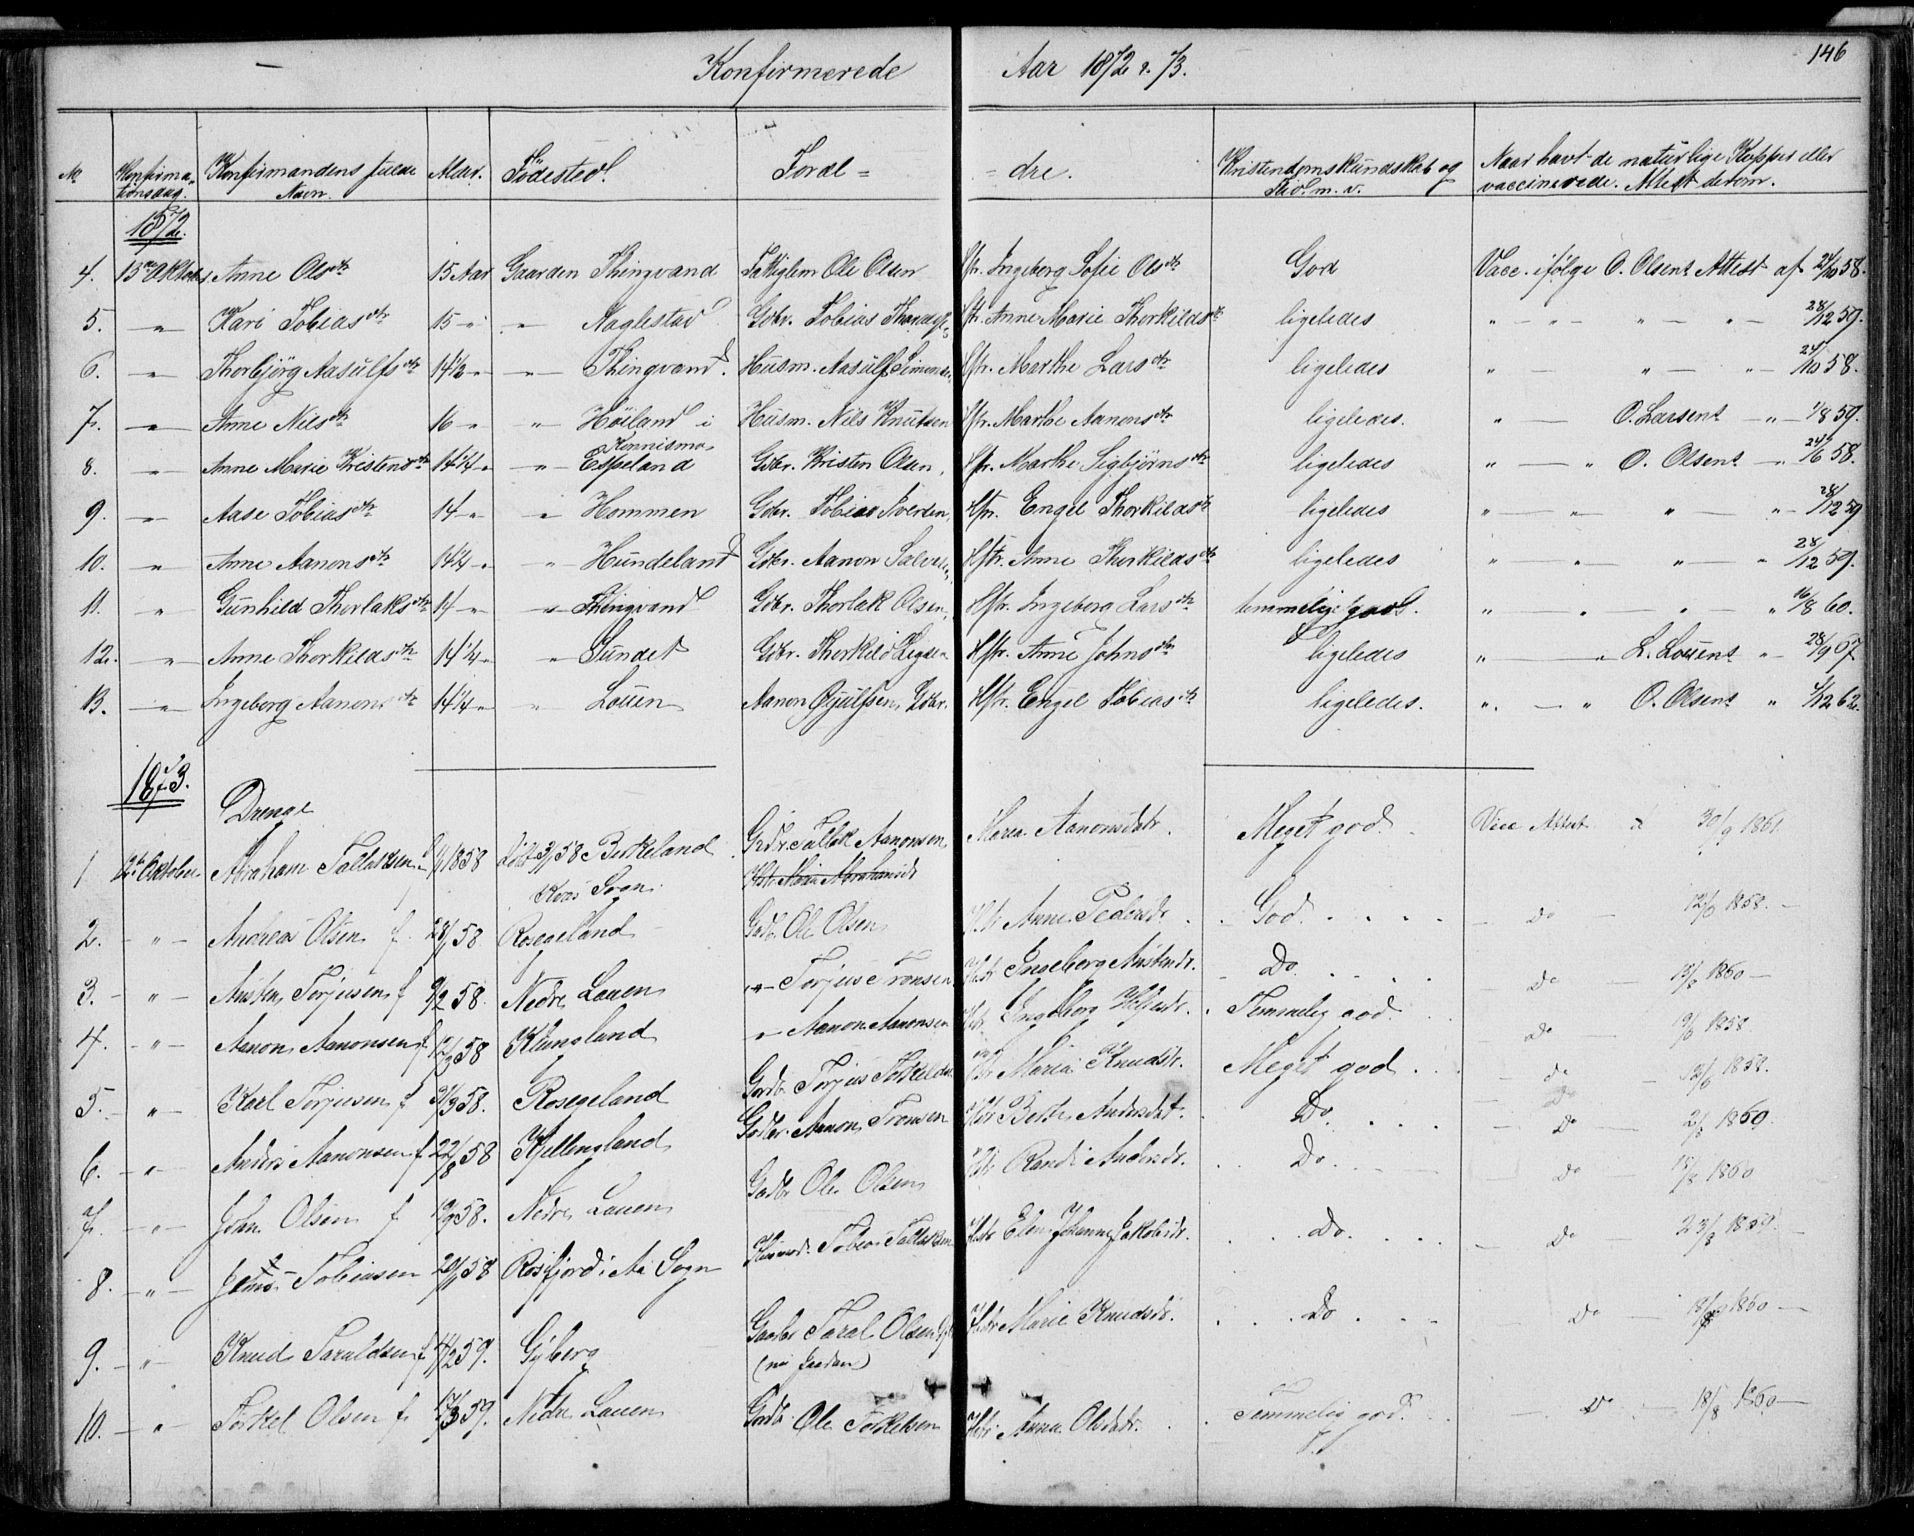 146
Konfirmerede Aar 1872 & 73.
No Konfirmationsdag. Konfirmandens fulde Navn. Alder. Fødested. Foræl= =dre. Kristendomskundskab og Naar havt de naturlige Kopper eller vaccinerede. Attest derom.
1872.
4. 15 Oktober Anne Olsdtr 15 Aar Gaarden Thingvand Fattiglem Ole Olsen Hstr. Ingeborg Sofie Olsdtr God Vacc. ifølge O. Olsens Attest af 24/10 58.
5. " Kari Tobiasdtr 15 " " Naglestad Gdbr. Tobias Hstr. Anne Marie Thorkildsdtr ligeledes " " " " 28/12 59.
6. " Thorbjørg Aasulfsdtr 14½ " " Thingvand. Husm. Aasulf Simonsen Hstr. Marthe Larsdtr ligeledes " " " 24/10 58.
7. " Anne Nilsdtr 16 " " Høiland i Kinnismo Husm. Nils Knutsen Hstr. Marthe Aanonsdtr ligeledes. " O. Larsens " 1/8 59.
8. " Anne Marie Kristensdtr 14¼ " " Espeland Gdbr. Kristen Olsen, Hstr. Marthe Sigbjørnsdtr ligeledes " " O. Olsens " 24/6 58.
9. " Aase Tobiasdtr 14 " " Hommen Gdbr. Tobias Iversen, Hstr. Engel Thorkildsdtr ligeledes " " " " 28/12 59
10. " Anne Aanonsdtr 14¼ " " Hundeland Gdbr. Aanon Hstr. Anne Thorkildsdtr ligeledes " " " " 28/12 59.
11. " Gunhild Thorlaksdtr 14 " " Thingvand Gdbr. Thorlak Olsen, Hstr. Ingeborg Larsdtr temmelig god. " " " " 16/8 60.
12. " Anne Thorkildsdtr 14¼ " " Sundet Gdbr. Thorkild Hstr. Anne Johnsdtr ligeledes " " L. Louens " 28/9 67
13. " Ingeborg Aanonsdtr 14¼ " " Louen Aanon Gjulfsen, Gdbr. Hstr. Engel Tobiasdtr ligeledes. " " O. Olsens " 1/12 62.
1873.
Drenge
1 12te Oktober Abraham Tallaksen 1858 58 Birkeland Kvås Sogn. Grdbr Tallak Aanonsen Maren Aanonsdtr. Meget god. Vacc Attest 30/9 1861.
2. " Andreas Olsen f. 58 Rosegeland Gdbr Ole Olsen Hstr Anne Pedersdtr. God. Do 1858.
3. " Austen Torjusen f 9/2 58. Nedre Lauen " Torjus Tronsen Hstr Ingeborg Austensdr. Do. Do 1860
4. " Aanon Aanonsen f 58 Klungland " Aanon Aanonsen Hstr. Ingeborg Temmelig god. Do 1858.
5. " Karl Torjusen f 31/3 58. Rosegeland Gdbr Torjus Torkelsen Maria Knudsdtr. Meget god. do 1858.
6. " Anders Aanonsen f 22/8 58 Kjellengland Gdbr. Aanon Tronsen Hstr Berte Andersdtr. Do. Do 1860.
7. " John Olsen f 58. Nedre Lauen Gdbr Ole Olsen Hstr Randi Andersdr. Do. Do 1860
8. " Tobiasen 58 Rosfjord i Aa Sogn Husmd. Tobias Tallaksen Hstr Elen Johanne Jakobsdr. Do. Do 23/8 1859.
9. " Knud Taraldsen f 59. Gyberg Gaardbr Taral Olsen Gyberg (nu Jaadan) Hstr Marie Knudsdr. Do Do 1860
10. " Torkel Olsen f. 17/3 59. Nedre Lauen Gdbr Ole Torkelsen Hstr. Anna Olsdatr. Temmelig god. Do 18/8 1860